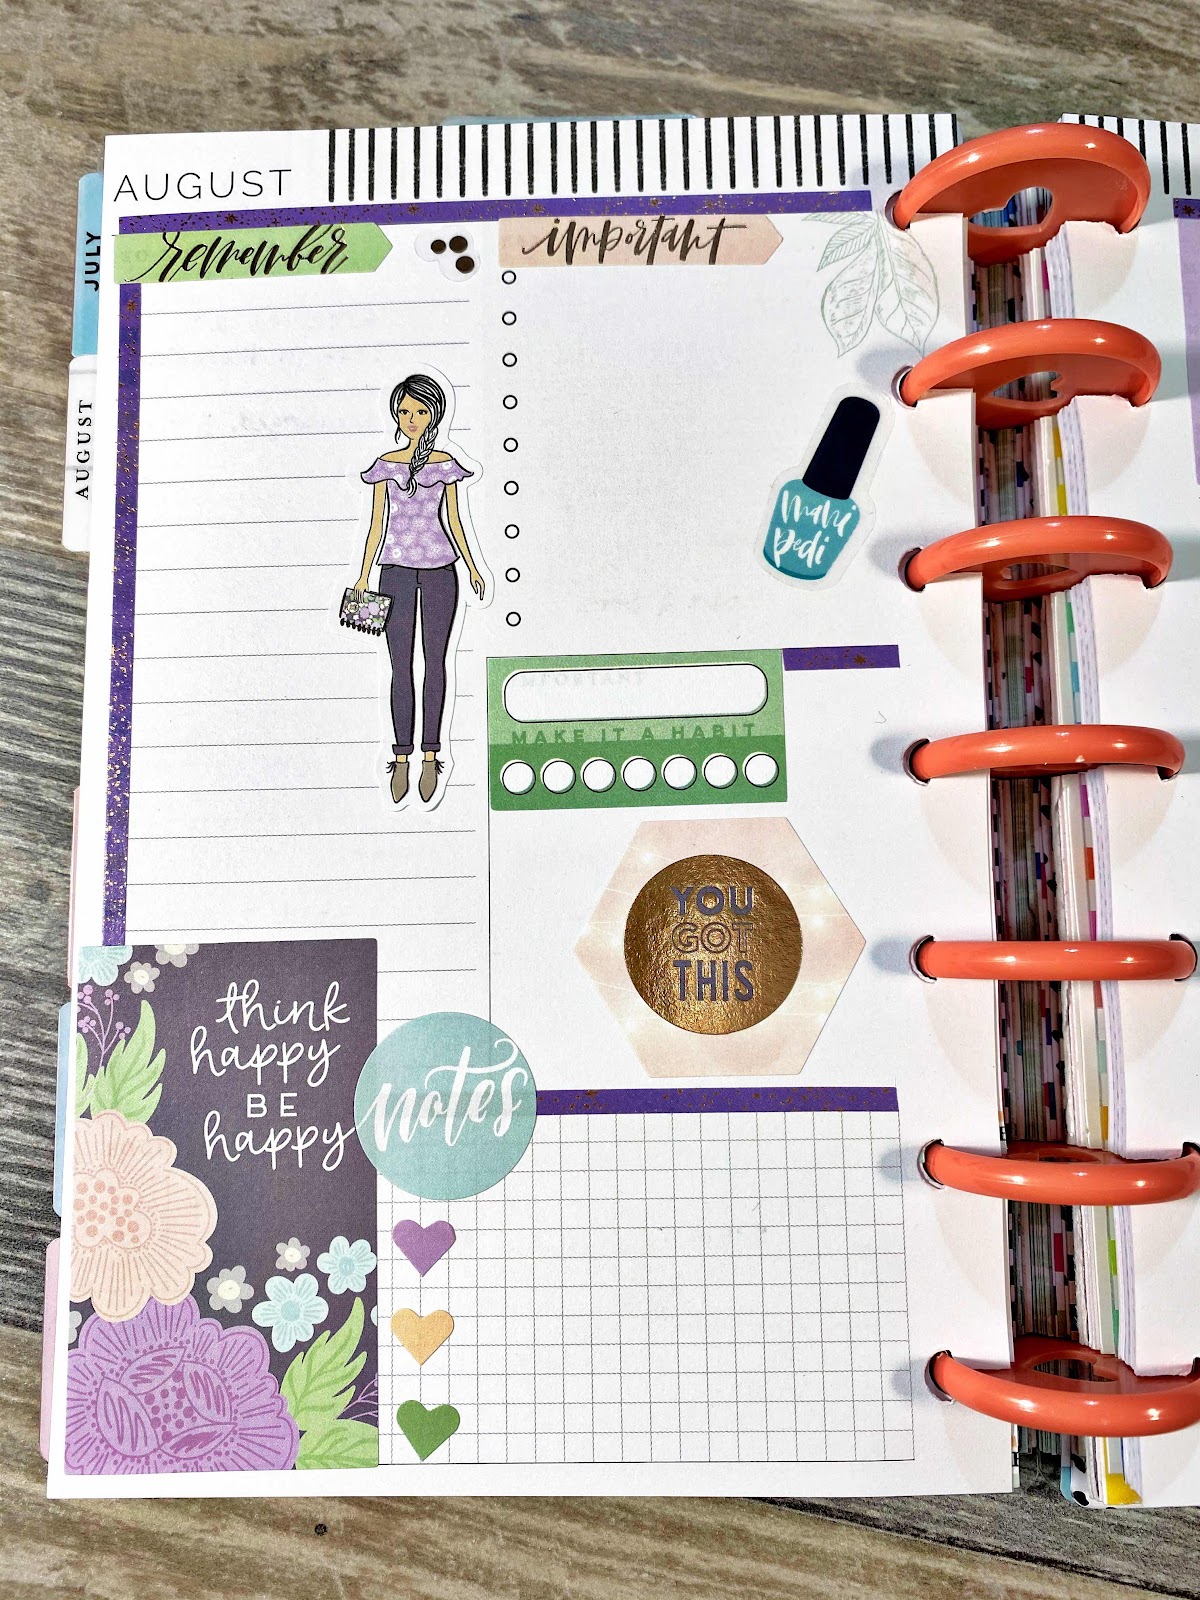 AUGUST
JULY
AUGUST
remember
important
mani
pedi
IMPORTANT
MAKE IT A HABIT
YOU
GOT
THIS
think
happy
BE
happy
notes